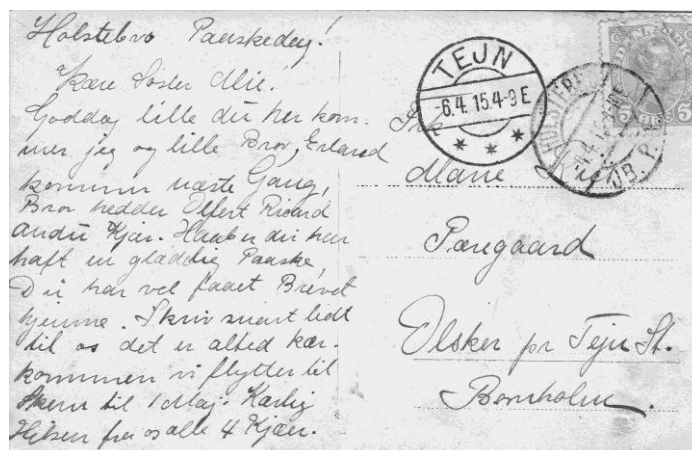 Holstebro Paaskedag!
Kære Søster Mie.
Goddag lille du her kom-
mer jeg og lille Bror, Erland
kommer næste Gang,
Bror hedder Olfert Ricard
André Kjær. Haaber du har
haft en glædelig Paaske,
Du har vel faaet Brevet
hjemme. Skriv snart lidt
til os det er altid kær-
kommen vi flytter til
Skern til 1 Maj. Kærlig
Hilsen fra os alle 4 Kjær.
TEJN
-6.4.15.4-9 E
Frk
Marie
Pæregaard
Olsker pr Tejn St.
Bornholm.
5 5